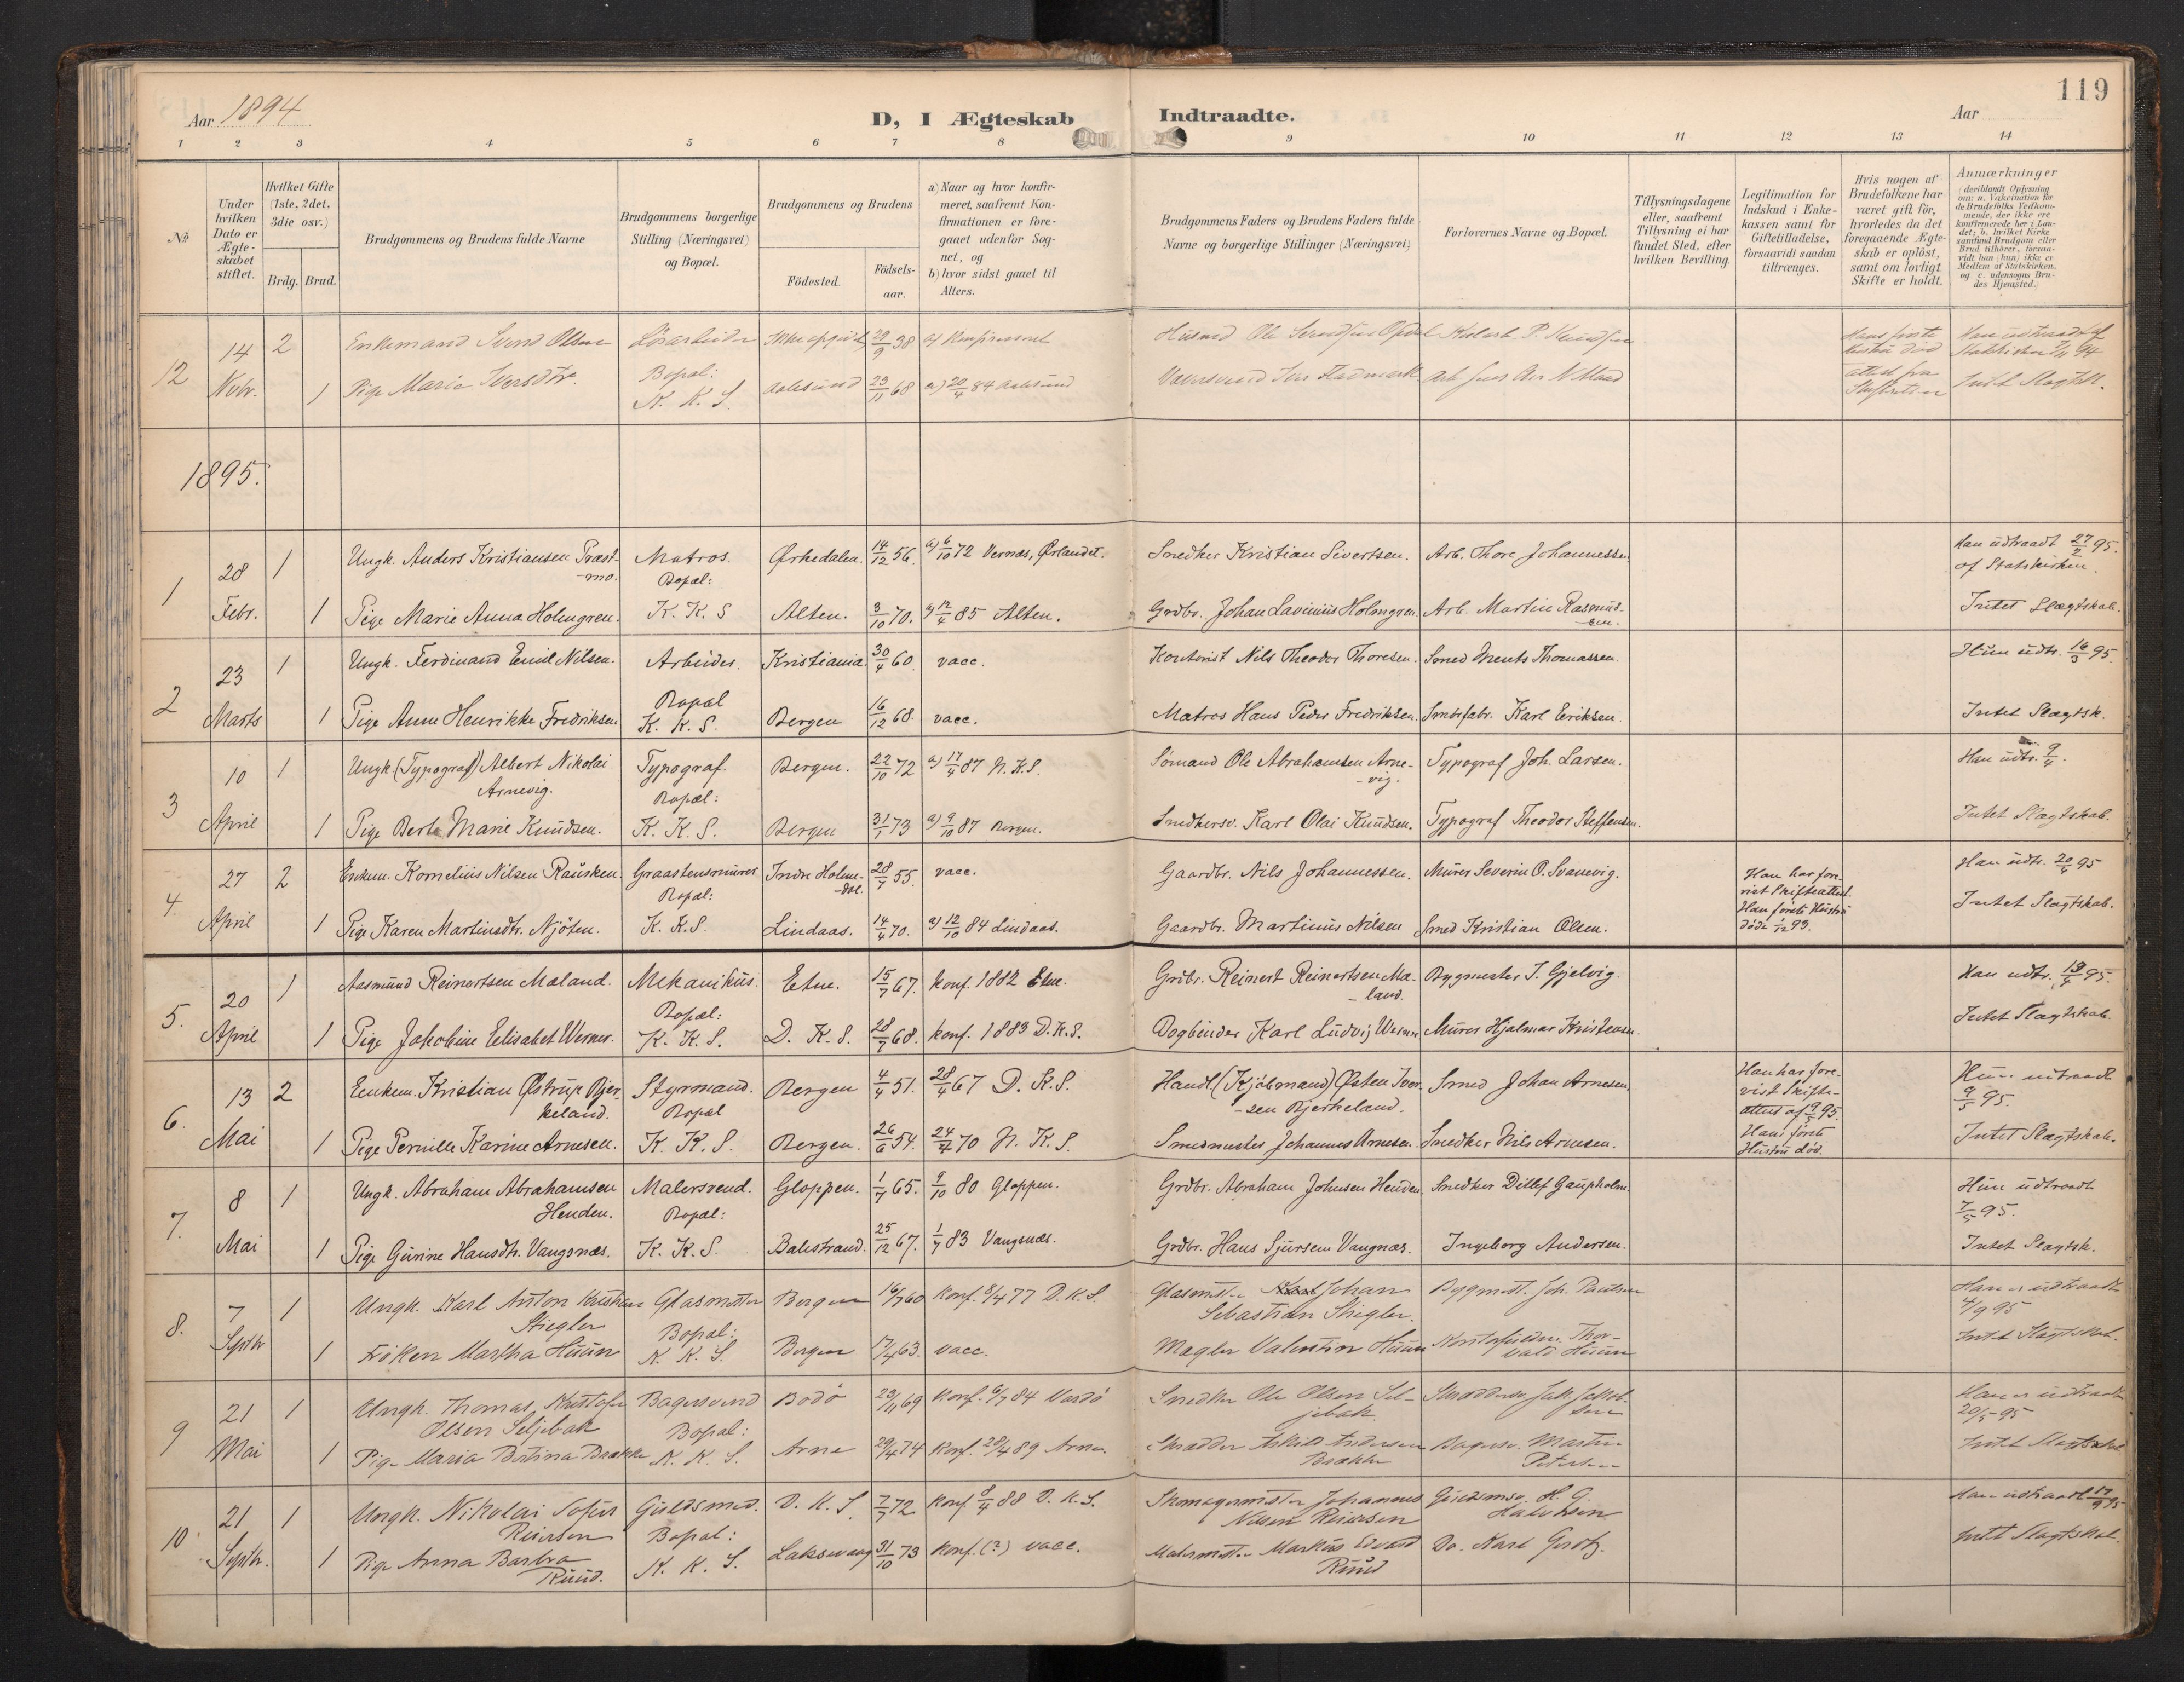 119
Aar 1894
D, I Ægteskab Indtraadte.
Aar
1 2 3 4 5 6 7 8 9 10 11 12 13 14
№
Under hvilken Dato er Ægteskabet stiftet.
Hvilket Gifte (1ste, 2det, 3die osv.)
Brdg. Brud.
Brudgommens og Brudens fulde Navne
Brudgommens borgerlige Stilling (Næringsvei) og Bopæl.
Brudgommens og Brudens
Födested.
Födselsaar.
a) Naar og hvor konfirmeret, saafremt Konfirmationen er foregaaet udenfor Sognet, og
b) hvor sidst gaaet til Alters.
Brudgommens Faders og Brudens Faders fulde Navne og borgerlige Stillinger (Næringsvei)
Forlovernes Navne og Bopæl.
Tillysningsdagene eller, saafremt Tillysning ei har fundet Sted, efter hvilken Bevilling.
Legitimation for Indskud i Enkekassen samt for Giftetilladelse, forsaavidt saadan tiltrænges.
Hvis nogen af Brudefolkene har været gift för, hvorledes da det foregaaende Ægteskab er oplöst, samt om lovligt Skifte er holdt.
Anmærkninger
(deriblandt Oplysning om: a. Vakcination for de Brudefolks Vedkommende, der ikke ere konfirmerede her i Landet; b. hvilket Kirkesamfund Brudgom eller Brud tilhörer, forsaavidt han (hun) ikke er Medlem af Statskirken, og c. udensogns Brudes Hjemsted.)
12 14 Novbr. 2 Enkemand Svend Olsen Løsarbeider 29/9 38 a) Konfirmeret
Bopæl: K. K. S.
1 Pige Marie Iversdtr. Aalesund 23/11 68 a) 20/4 84 Aalesund
Hans første Hustru død
Han udtraadt af Statskirken 94
Intet Slægtsk.
1895.
1 28 Febr. 1 Ungk. Anders Kristiansen Præstmo. Matros. Ørkedalen. 14/12 56. a) 6/10 72 Vernæs, Ørlandet. Snedker Kristian Sivertsen. Arb. Thore Johannessen. Han udtraadt 27/2 95. af Statskirken.
Bopæl: K. K. S
1 Pige Marie Anna Holmgren. Alten. 3/10 70. a) 12/4 85 Alten. Grdbr. Johan Lavinius Holmgren. Arb. Martin Rasmussen. Intet Slægtskab.
2 23 Marts 1 Ungk. Ferdinand Emil Nilsen. Arbeider. Kristiania. 30/4 60. vacc. Kontorist Nils Theodor Thoresen. Smed Ments Thomassen. Hun udtr. 16/3 95.
Bopæl K. K. S.
1 Pige Anne Henrikke Fredriksen. Bergen 16/12 68. vacc. Matros Hans Peder Fredriksen. Smørfabr. Karl Eriksen. Intet Slægtsk.
3 10 April 1 Ungk. (Typograf) Albert Nikolai Arnevig. Typograf. Bergen. 22/10 72 a) 17/4 87 N. K. S. Sømand Ole Abrahamsen Arnevig. Typograf Joh. Larsen. Han udtr. 9/4.
Bopæl: K. K. S.
1 Pige Berte Marie Knudsen. Bergen 31/1 73 a) 9/10 87 Bergen. Snedkersv. Karl Olai Knudsen. Typograf Theodor Steffensen. Intet Slægtskab.
4. 27 April 2 Enkem. Kornelius Nilsen Rausken. Graastensmurer Indre Holmedal. 28/7 55. vacc. Gaardbr. Nils Johannessen. Murer Severin O. Svanevig. Han har forevist Skifteattest. Han første Hustru døde 1/12 93. Han udtr. 20/4 95
Bopæl: K. K. S.
1 Pige Karen Martinsdtr. Njøten. Lindaas. 14/4 70. a) 12/10 84 Lindaas. Gaardbr. Martinus Nilsen Smed Kristian Olsen. Intet Slægtskab.
5. 20 April 1 Aasmund Reinertsen Maland. Mekanikus. Etne. 15/7 67. Konf. 1882 Etne. Grdbr. Reinert Reinertsen Maland. Bygmester J. Gjelvig. Han udtr. 19/4 95.
Bopæl: K. K. S.
1 Pige Jakobine Elisabet Werner. D. K. S. 28/7 68. Konf. 1883 D. K. S. Bogbinder Karl Ludvig Werner Murer Hjalmar Kristensen. Intet Slægtskab.
6. 13 Mai 2 Enkem. Kristian Østrup Bjerkeland. Styrmand. Bergen 4/4 51. 28/4 67 D. K. S. Handl (Kjøbmand) Østen Iversen Bjerkeland. Smed Johan Arnesen. Han har forevist Skifteattest af 9/5 95. Hans første Hustru død. Hun udtraadt 9/5 95.
Bopæl K. K. S.
1 Pige Pernille Karine Arnesen. Bergen. 26/6 54. 24/4 70 N. K. S. Smedmester Johannes Arnesen. Snedker Nils Arnesen. Intet Slægtskab.
7. 8 Mai 1 Ungk. Abraham Abrahamsen Henden. Malersvend. Gloppen. 1/7 65. 9/10 80 Gloppen. Grdbr. Abraham Johnsen Henden. Snedker Ditlef Gaupholm. Hun udtraadt 7/5 95.
Bopæl: K. K. S.
1 Pige Gurine Hansdtr. Vangsnæs. Balestrand. 25/12 67. 1/7 83 Vangsnæs. Grdbr. Hans Sjursen Vangnæs. Ingeborg Andersen. Intet Slægtsk.
8. 7 Septbr 1 Ungk. Karl Anton Kristian Stiegler Glasmester Bergen 16/7 60 Konf. 8/4 77 D. K. S. Glasmster Johan Sebastian Stiegler. Bygmst. Joh. Paulsen Han er udtraadt 4/9 95
Bopæl: K. K. S.
1 Frøken Martha Huun Bergen 17/4 63. vacc. Mægler Valentin Huun Thorvald Huun Intet Slægtskab.
9 21 Mai 1 Ungk. Thomas Kristofer Olsen Seljebak Bagersvend Bodø 23/11 69 Konf. 6/7 84 Vardø Snedker Ole Olsen Seljebak Skræddersv. Jak. Jakobsen Han er udtraadt 20/5 95
Bopæl: K. K. S.
1 Pige Maria Bertina Brække Arne 29/4 74 Konf. 28/4 89 Arne. Skrædder Askild Andersen Brække Bagersv. Martin Petersen Intet Slægtskab
10 21 Septbr. 1 Ungk. Nikolai Sofus Reiersen Guldsmed. D. K. S. 7/7 72 Konf. 8/4 88 D. K. S. Skomagermester Johannes Nilsen Reiersen Guldsmsv. H. G. Halvorsen Han udtraadt 17/9 95
Bopæl: K. K. S.
1 Pige Anna Barbra Ruud. Laksevaag 31/10 73 Konf. (?) vacc. Malermester Markus Edvard Ruud Do. Karl Gertz. Intet Slægtskab.